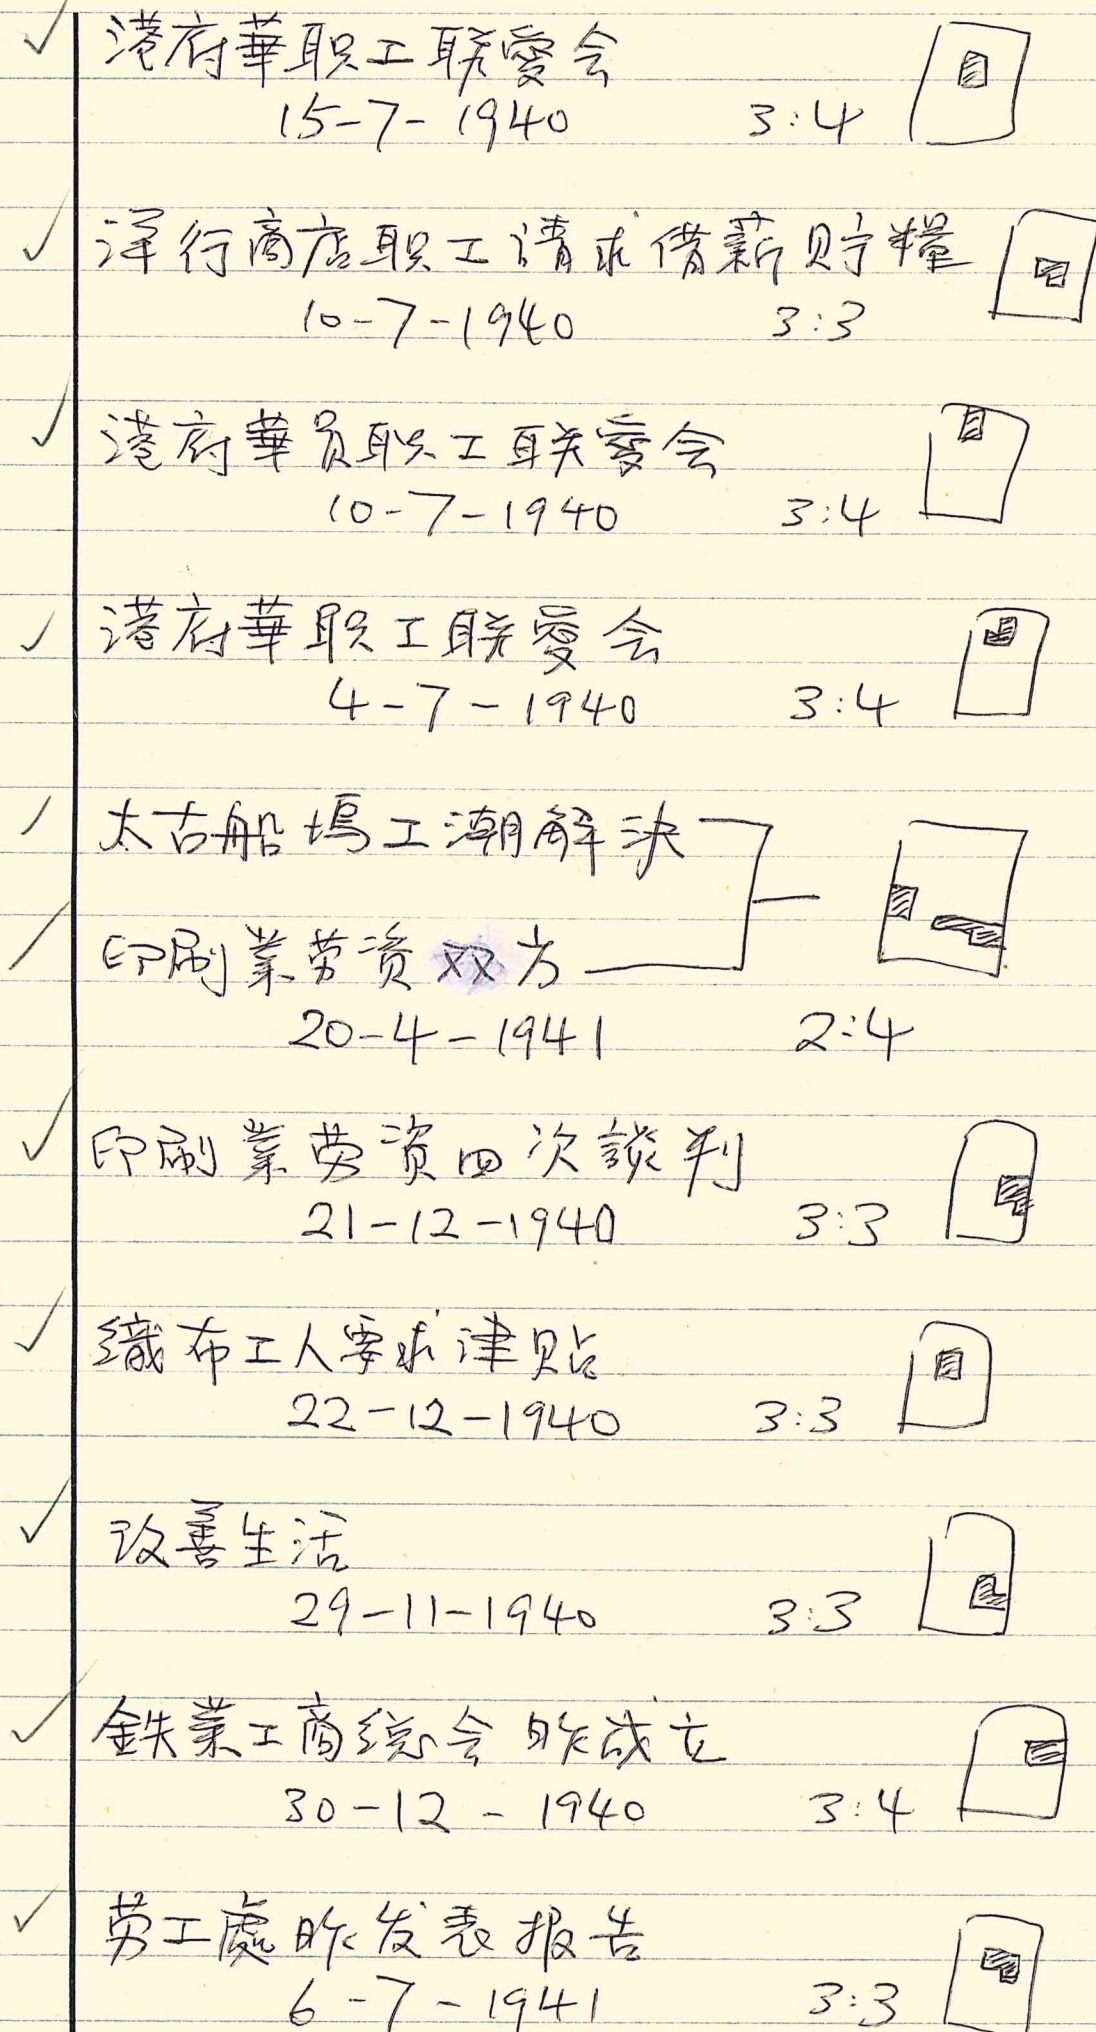 港府華职工联愛会
15-7-1940 3:4
洋行商店职工请求借薪貯糧
10-7-1940 3:3
港府華员职工联愛会
10-7-1940 3:4
港府華职工联愛会
4-7-1940 3:4
太古船塢工潮解决
印刷業劳资双方
20-4-1941 2:4
印刷業劳资四次談判
21-12-1940 3:3
織布工人要求津贴
22-12-1940 3:3
改善生活
29-11-1940 3:3
鉄業工商総会昨成立
30-12-1940 3:4
劳工處昨发表报告
6-7-1941 3:3